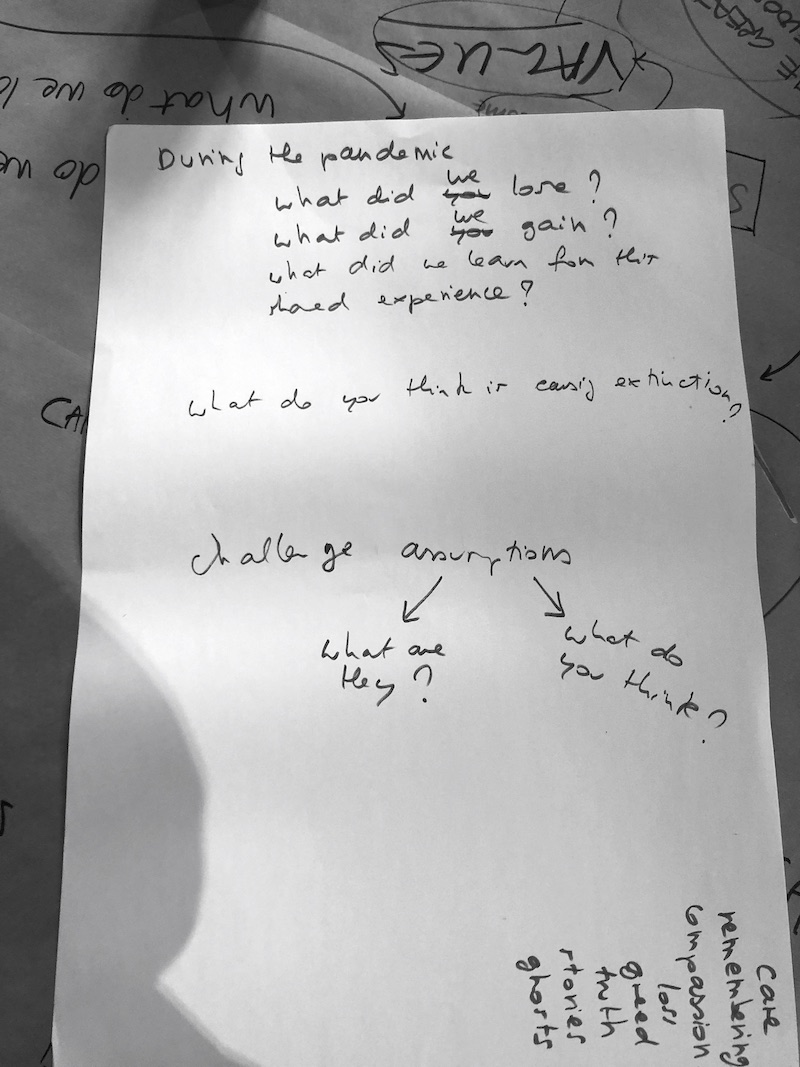 VALUES
What do we lo
do we
During the pandemic
what did ~~you~~ we lose?
what did ~~you~~ we gain?
what did we learn from this
shared experience?
what do you think is causig extinction?
challenge assumptions
what are
they?
what do
you think?
care
remembering
compassion
loss
greed
truth
stories
ghosts